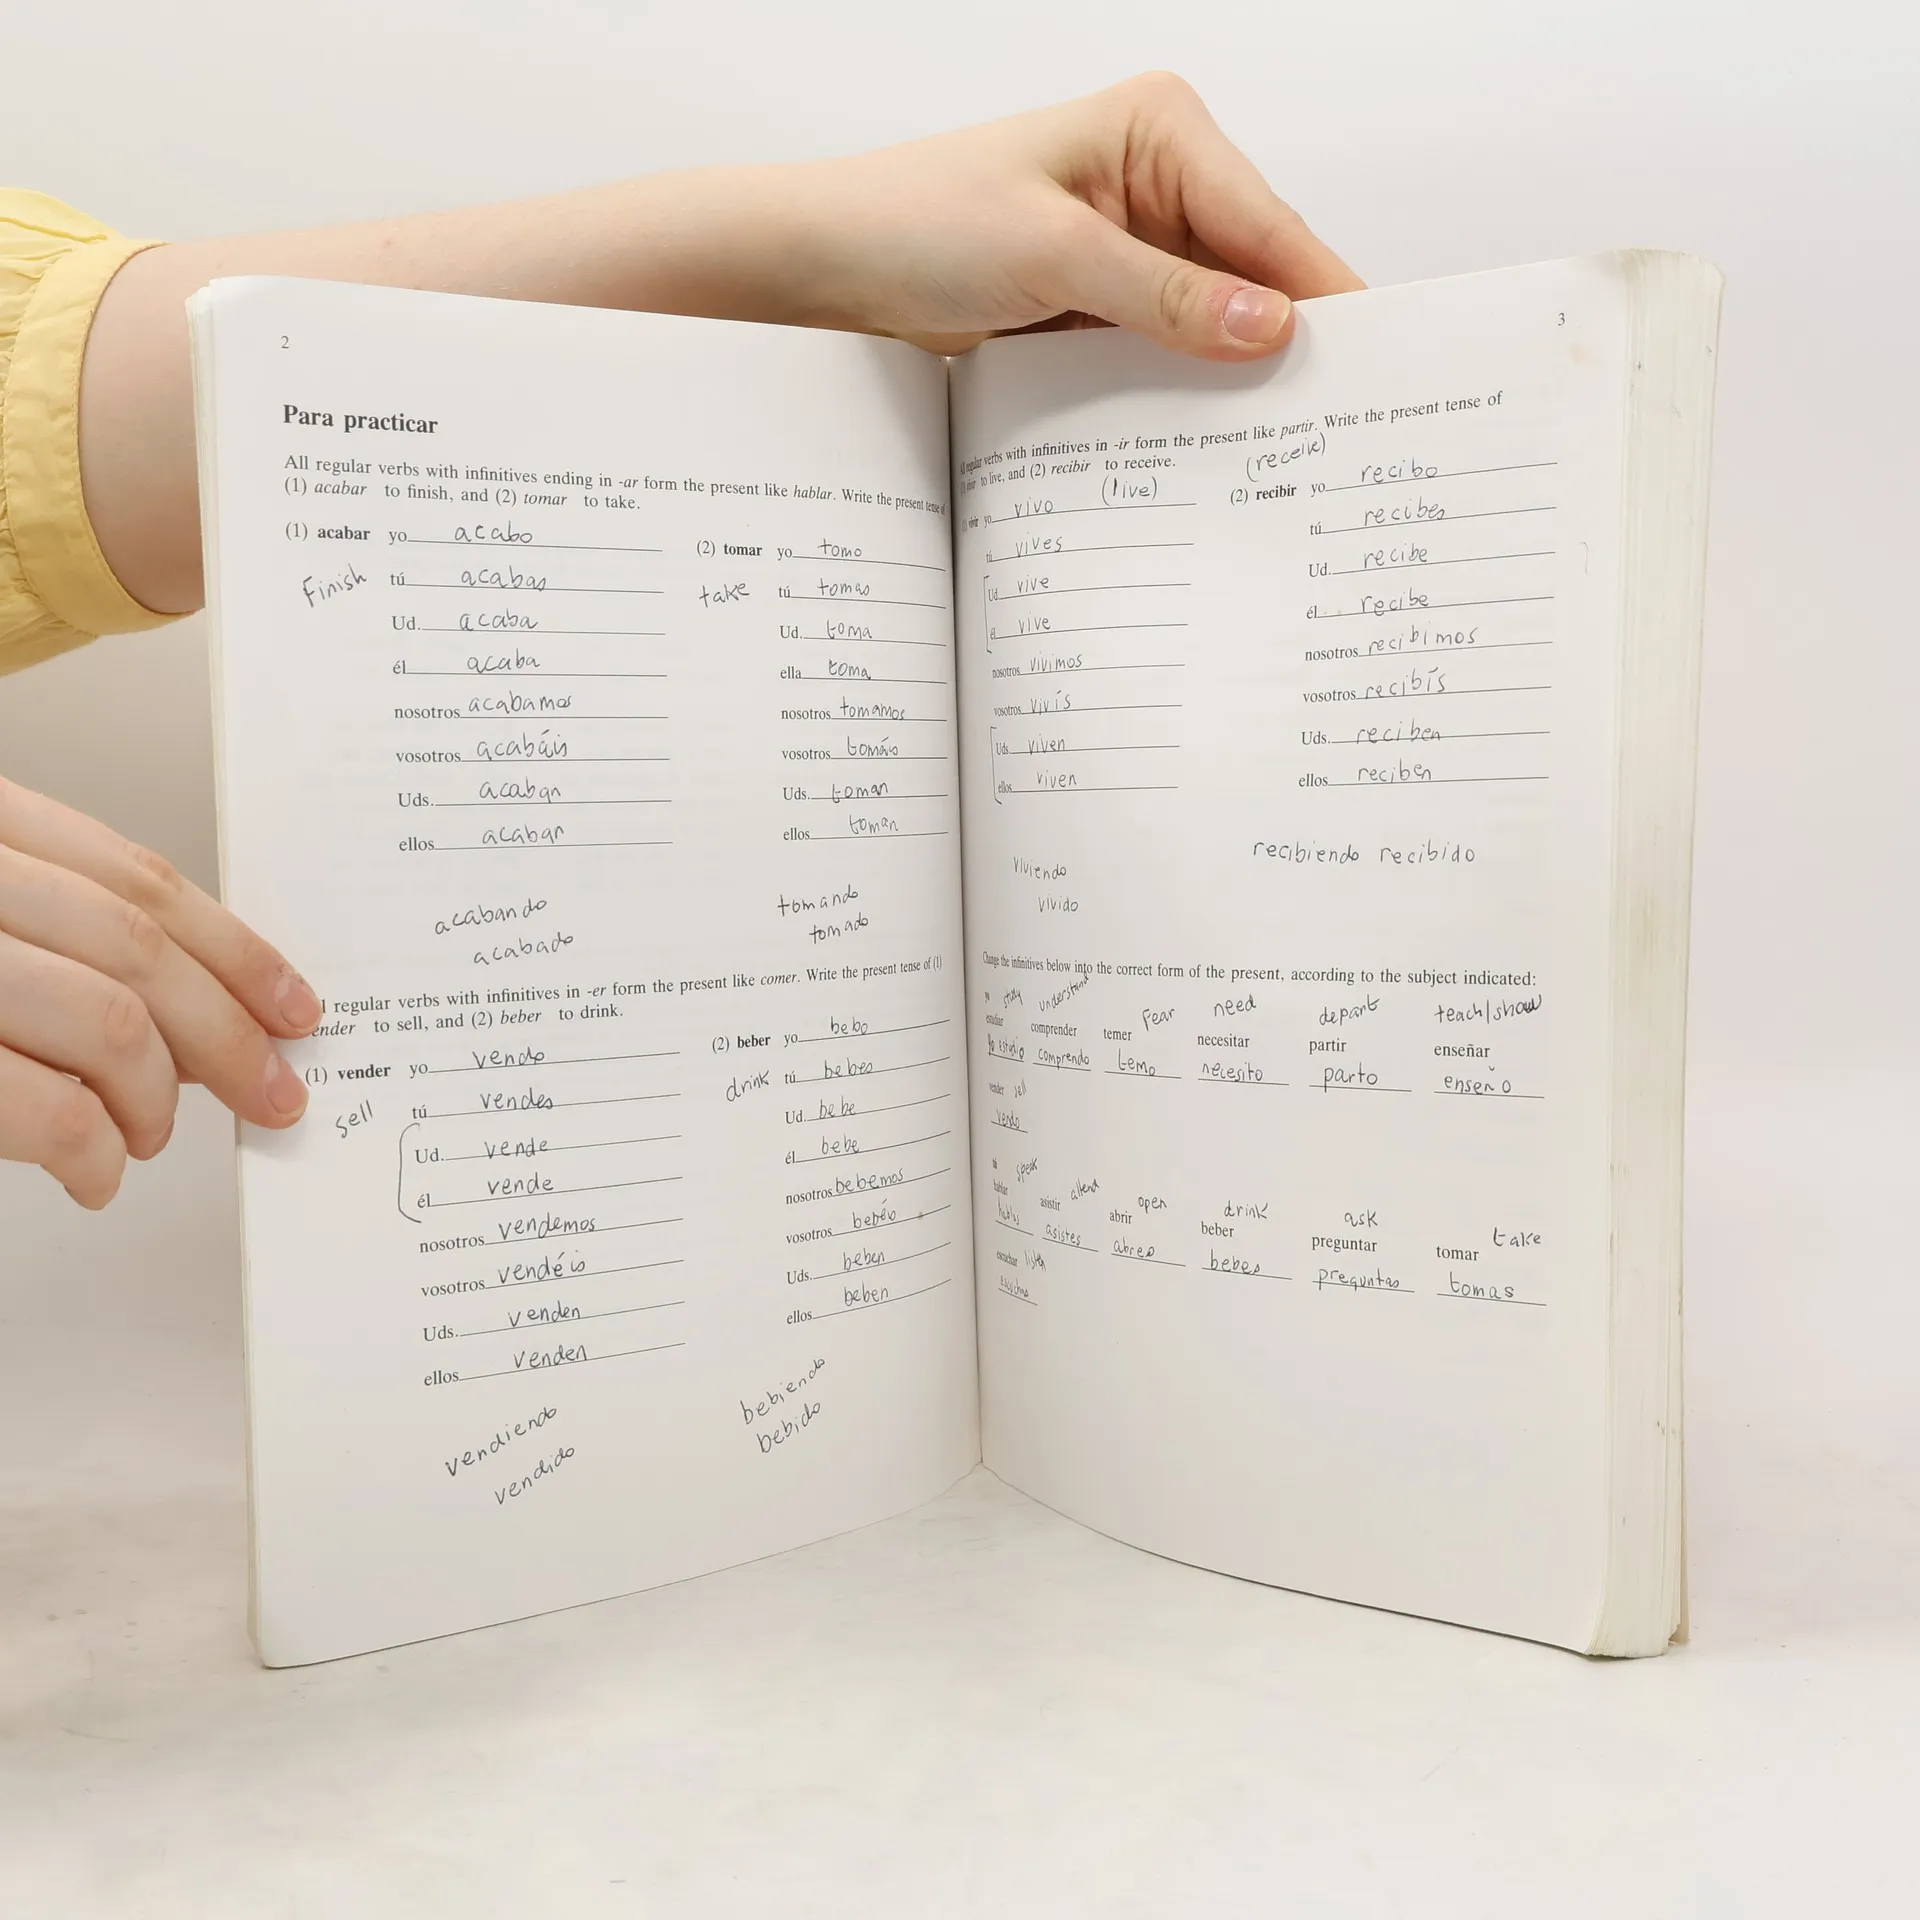 2
Para practicar
All regular verbs with infinitives ending in -ar form the present like hablar. Write the present tense of
(1) acabar to finish, and (2) tomar to take.
(1) acabar yo acabo
Finish tú acabas
Ud. acaba
él acaba
nosotros acabamos
vosotros acabáis
Uds. acaban
ellos acaban
acabando
acabado
(2) tomar yo tomo
take tú tomas
Ud. toma
ella toma
nosotros tomamos
vosotros tomáis
Uds. toman
ellos toman
tomando
tomado
regular verbs with infinitives in -er form the present like comer. Write the present tense of (1)
vender to sell, and (2) beber to drink.
(1) vender yo vendo
sell tú vendes
Ud. vende
él vende
nosotros vendemos
vosotros vendéis
Uds. venden
ellos venden
vendiendo
vendido
(2) beber yo bebo
drink tú bebes
Ud. bebe
él bebe
nosotros bebemos
vosotros bebéis
Uds. beben
ellos beben
bebiendo
bebido
3
All regular verbs with infinitives in -ir form the present like partir. Write the present tense of
to live, and (2) recibir to receive.
(live)
yo vivo
tú vives
Ud. vive
él vive
nosotros vivimos
vosotros vivís
Uds. viven
ellos viven
viviendo
vivido
(receive)
(2) recibir yo recibo
tú recibes
Ud. recibe
él recibe
nosotros recibimos
vosotros recibís
Uds. reciben
ellos reciben
recibiendo recibido
Change the infinitives below into the correct form of the present, according to the subject indicated:
yo study understand Fear need depart teach/show
estudiar comprender temer necesitar partir enseñar
yo estudio comprendo temo necesito parto enseño
vender sell
vendo
tú speak attend open drink ask take
hablar asistir abrir beber preguntar tomar
hablas asistes abres bebes preguntas tomas
escuchar listen
escuchas